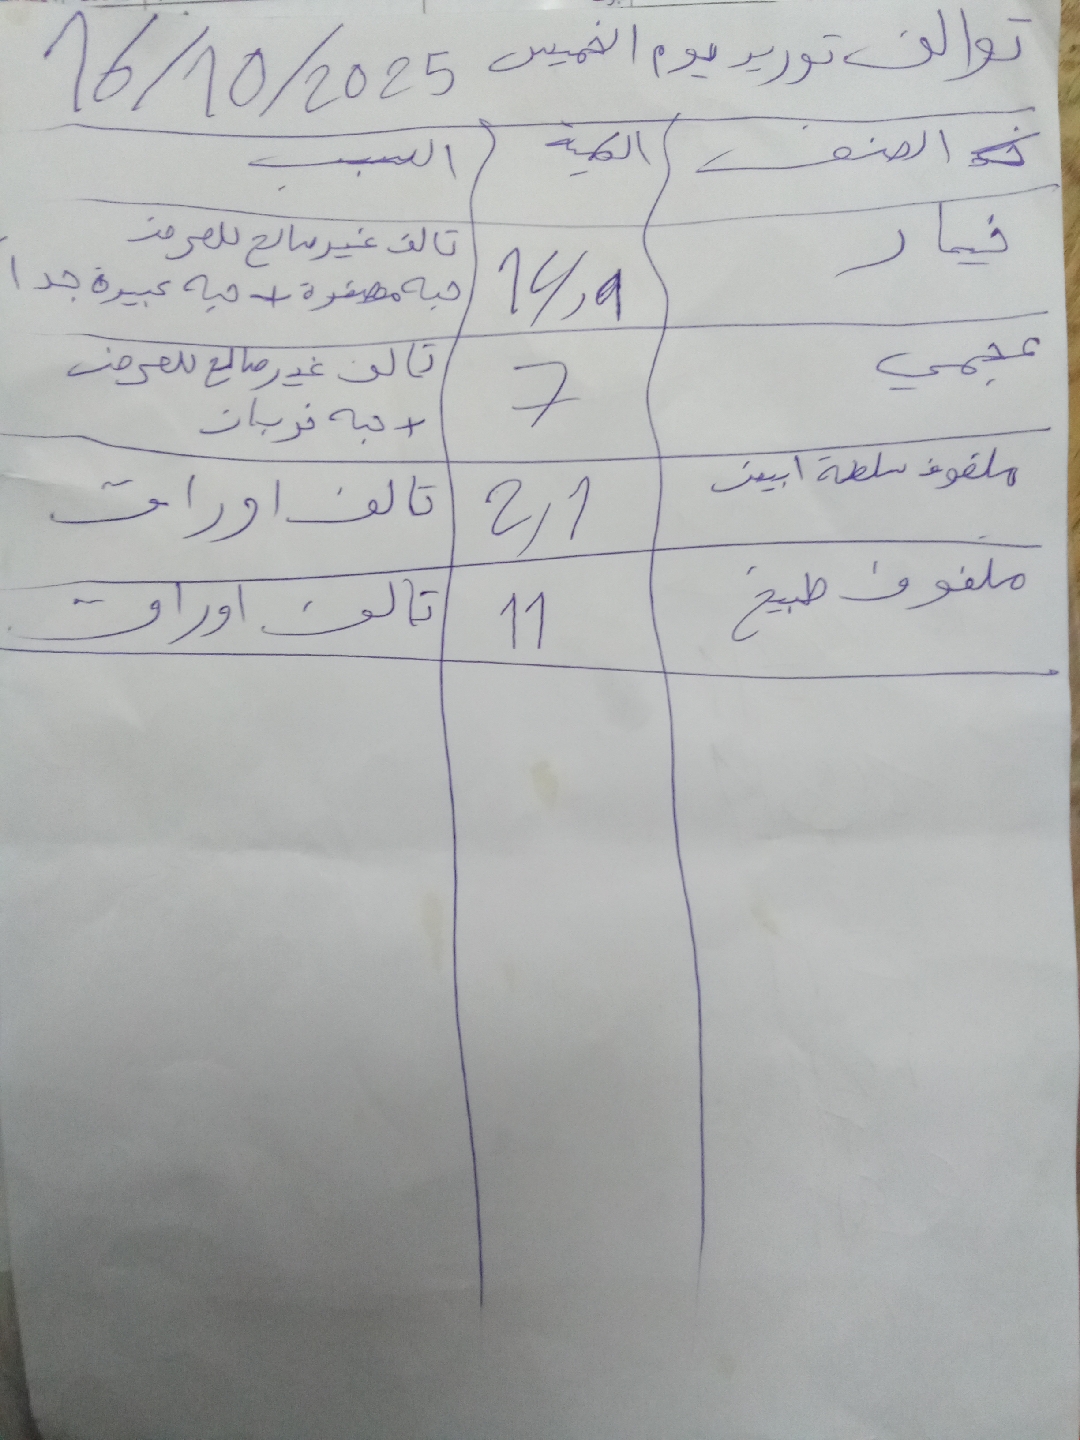 توالف توريد يوم الخميس 16/10/2025
الصنف الكمية السبب
خيار 14,9 تالف غير صالح للعرض
حبه مصفرة + حبه كبيرة جدا
عجمي 7 تالف غير صالح للعرض
+ حبه خربان
ملفوف سلطة ابيض 2,1 تالف اوراق
ملفوف طبيخ 11 تالف اوراق